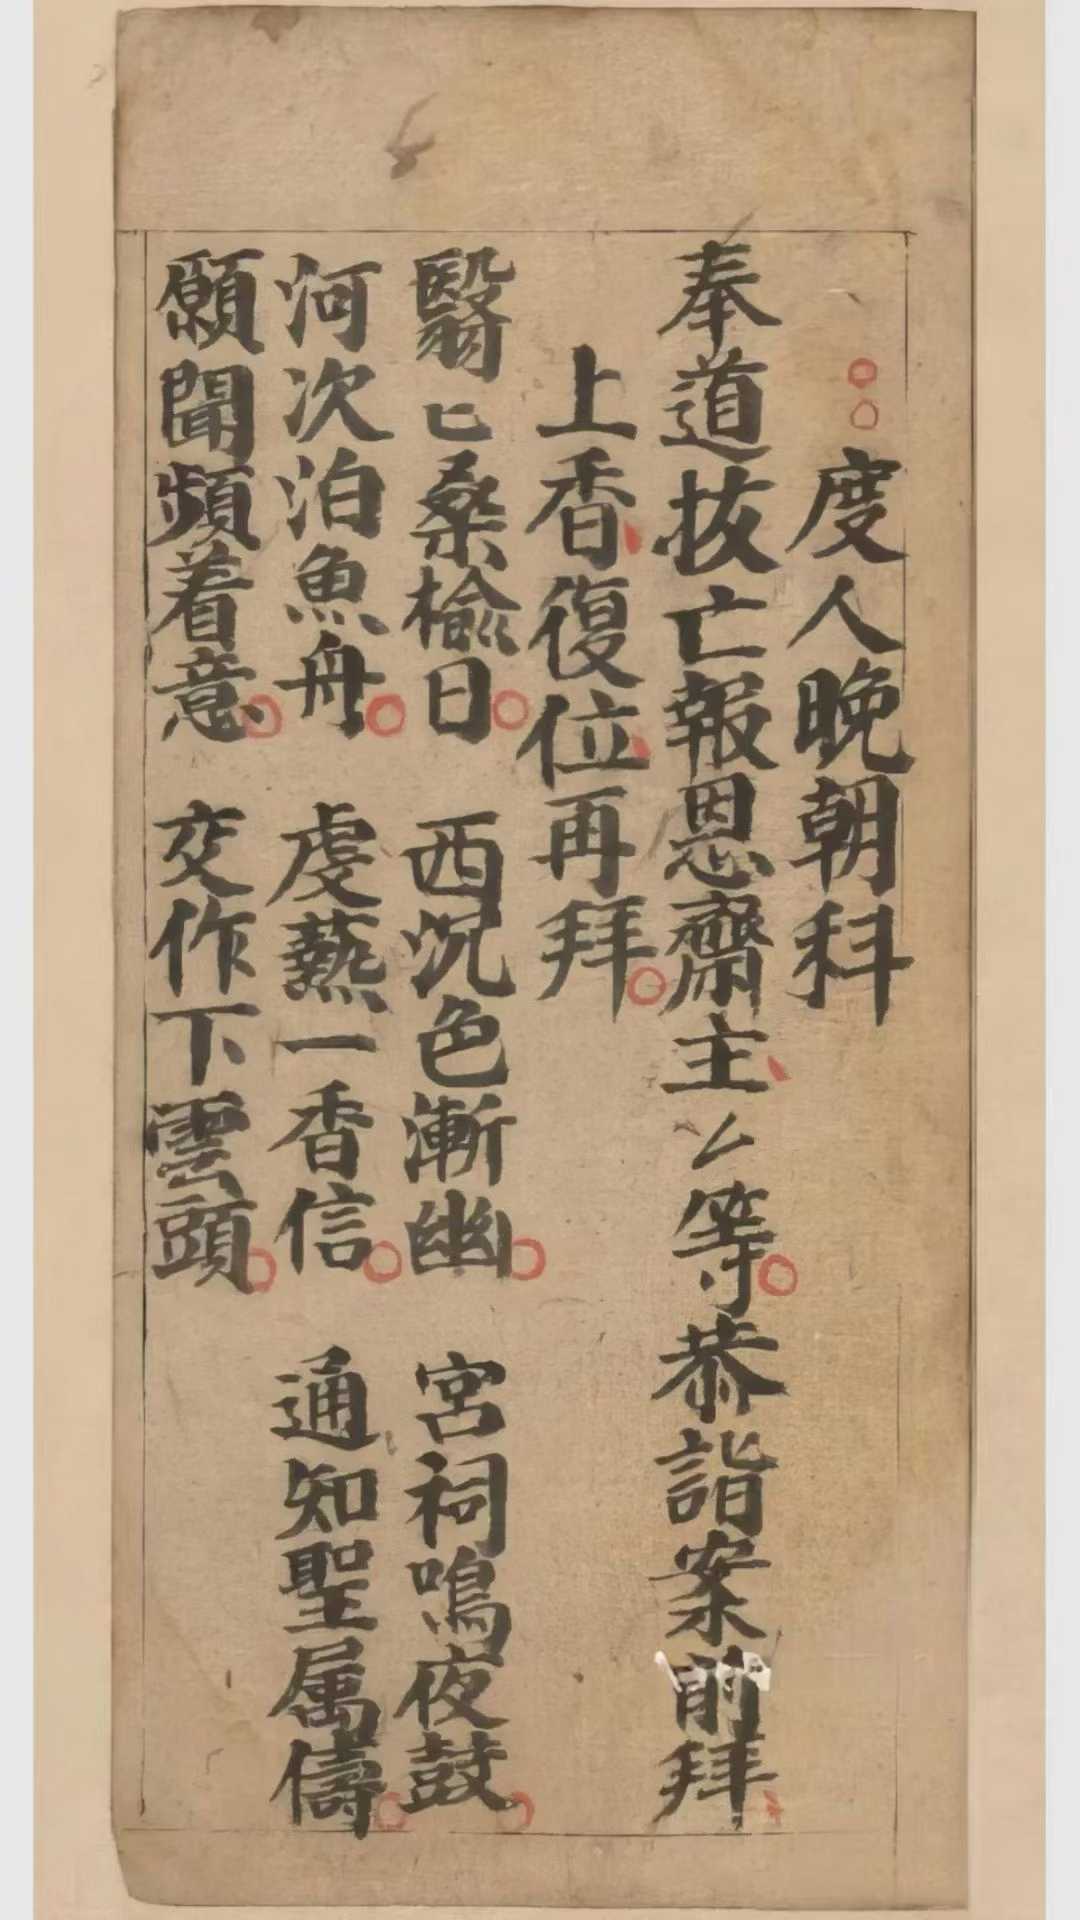 度人晚朝科
奉道拔亡報恩齋主厶等恭詣案前拜
上香復位再拜
翳匕桑榆日 西沉色漸幽 宮祠鳴夜鼓
河次泊魚舟 虔爇一香信 通知聖屬儔
願聞頻着意 交作下雲頭